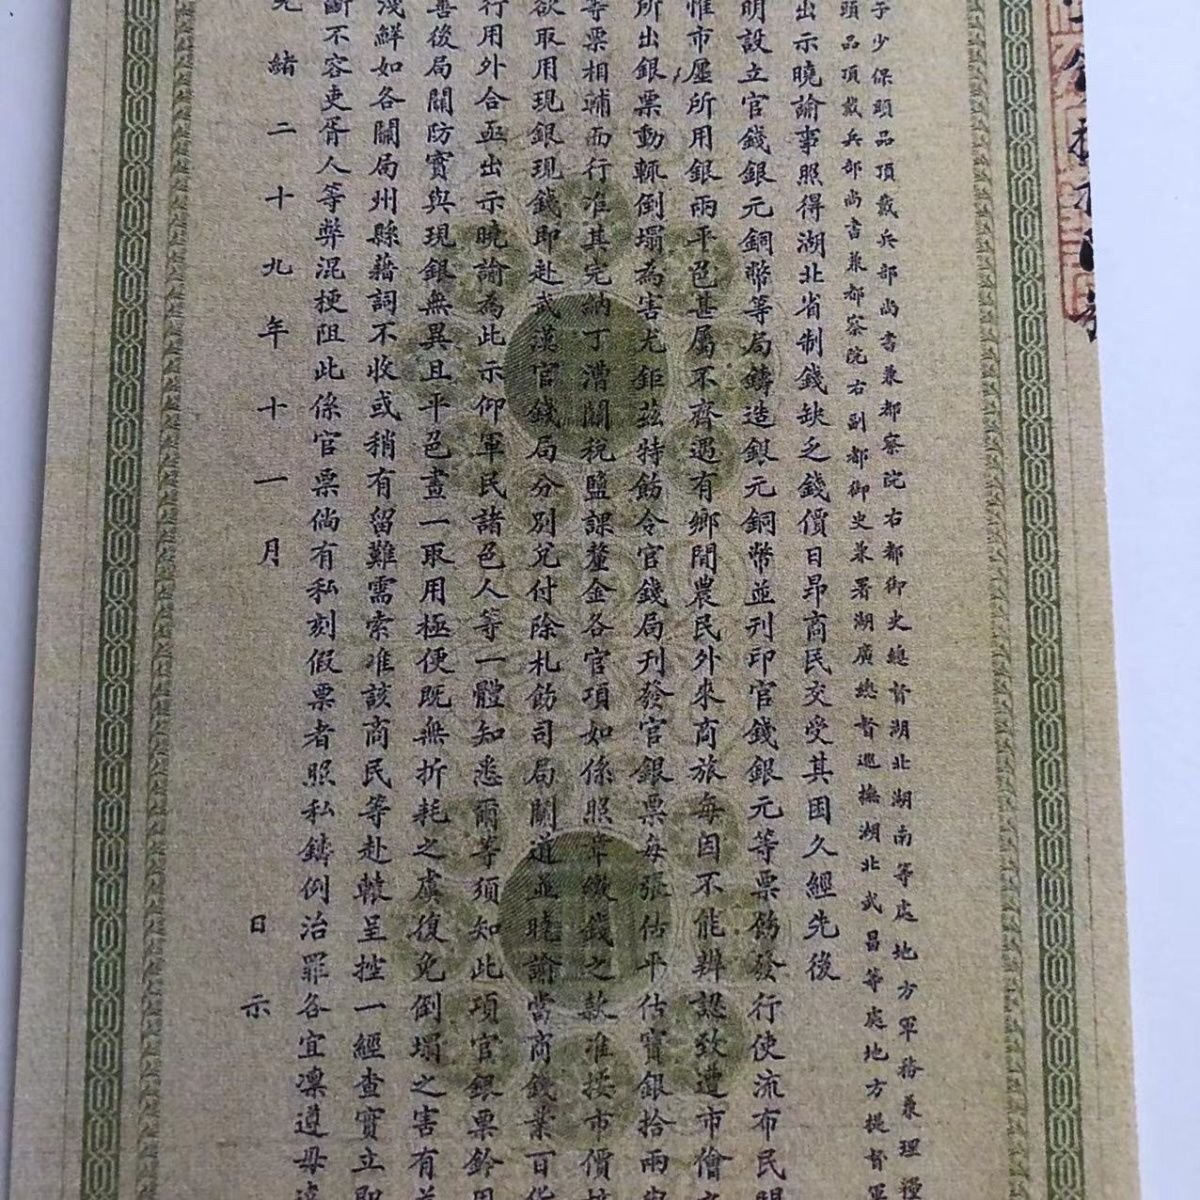 子少保頭品頂戴兵部尚書兼都察院右都御史總督湖北湖南等處地方軍務兼理糧
頭品頂戴兵部尚書兼都察院右副都御史兼署湖廣總督巡撫湖北武昌等處地方提督軍
出示曉諭事照得湖北省制錢缺乏錢價日昂商民交受其困久經先後
明設立官錢銀元銅幣等局鑄造銀元銅幣並刊印官錢銀元等票飭發行使流布民間
惟市廛所用銀兩平色甚屬不齊遇有鄉間農民外來商旅每因不能辨認致遭市儈
所出銀票動輒倒塌為害尤鉅茲特飭令官錢局刊發官銀票每張估平估寶銀拾兩
等票相輔而行准其完納丁漕關稅鹽課釐金各官項如係照章繳錢之款准按市價
欲取用現銀現錢即赴武漢官錢局分別兌付除札飭司局關道並曉諭當商錢業百
行用外合亟出示曉諭為此示仰軍民諸色人等一體知悉爾等須知此項官銀票鈐用
善後局關防實與現銀無異且平色畫一取用極便既無折耗之虞復免倒塌之害有
淺鮮如各關局州縣藉詞不收或稍有留難需索准該商民等赴轅呈控一經查實立即
斷不容吏胥人等弊混梗阻此係官票倘有私刻假票者照私鑄例治罪各宜凜遵毋違
緒二十九年十一月 日示